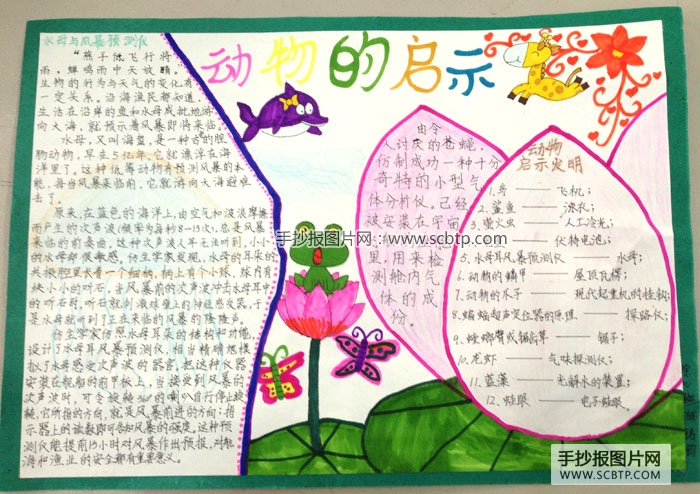 水母与风暴预测仪
"燕子低飞行将
雨，蝉鸣雨中天放晴。"
生物的行为与天气的变化有
一定关系。沿海渔民都知道，
生活在沿岸的鱼和水母成批地游
向大海，就预示着风暴即将来临。
水母，又叫海蜇，是一种古的腔
肠动物，早在5亿年，它就漂浮在海
洋里了。这种低等动物有预测风暴的本
能，每当风暴来临前，它就游向大海避难
去了。
原来，在蓝色的海洋上，由空气和波浪摩擦
而产生的次声波(频率为每秒8—13次)，总是风暴
来临的前奏曲。这种次声波人耳无法听到，小小
的水母却很敏感。仿生学家发现，水母的耳朵的
共振腔里长着一个细柄，柄上有个小球，球内有
块小小的听石，当风暴前的次声波冲击水母耳中
的听石时，听石就刺激球壁上的神经感受器，于
是水母就听到了正在来临的风暴的隆隆声。
仿生学家仿照水母耳朵的结构和功能，
设计了水母耳风暴预测仪，相当精确地模
拟了水母感受次声波的器官。把这种仪器
安装在舰船的前甲板上，当接受到风暴的
次声波时，可令旋转360°的喇叭自行停止旋
转，它所指的方向，就是风暴前进的方向；指
示器上的读数即可告知风暴的强度。这种预
测仪能提前15小时对风暴作出预报，对航
海和渔业的安全都有重要意义。
动物的启示
由令
人讨厌的苍蝇，
仿制成功一种十分
奇特的小型气
体分析仪。已经
被安装在宇宙
里，用来检
测舱内气
体的成
份。
动物
启示发明
1.鸟——飞机；
2.鲨鱼——泳衣；
3.萤火虫——人工冷光；
——伏特电池；
5.水母耳风暴预测仪——水母；
6.动物的鳞甲——屋顶瓦楞；
7.动物的爪子——现代起重机的挂钩；
8.蝙蝠超声定位器的原理——探路仪；
9.螳螂臂或锯齿草——锯子；
10.龙虾——气味探测仪；
11.蓝藻——光解水的装置；
12.蛙眼——电子蛙眼。
手抄报图片网：www.scbtp.com
手抄报图片网
WWW.SCBTP.COM